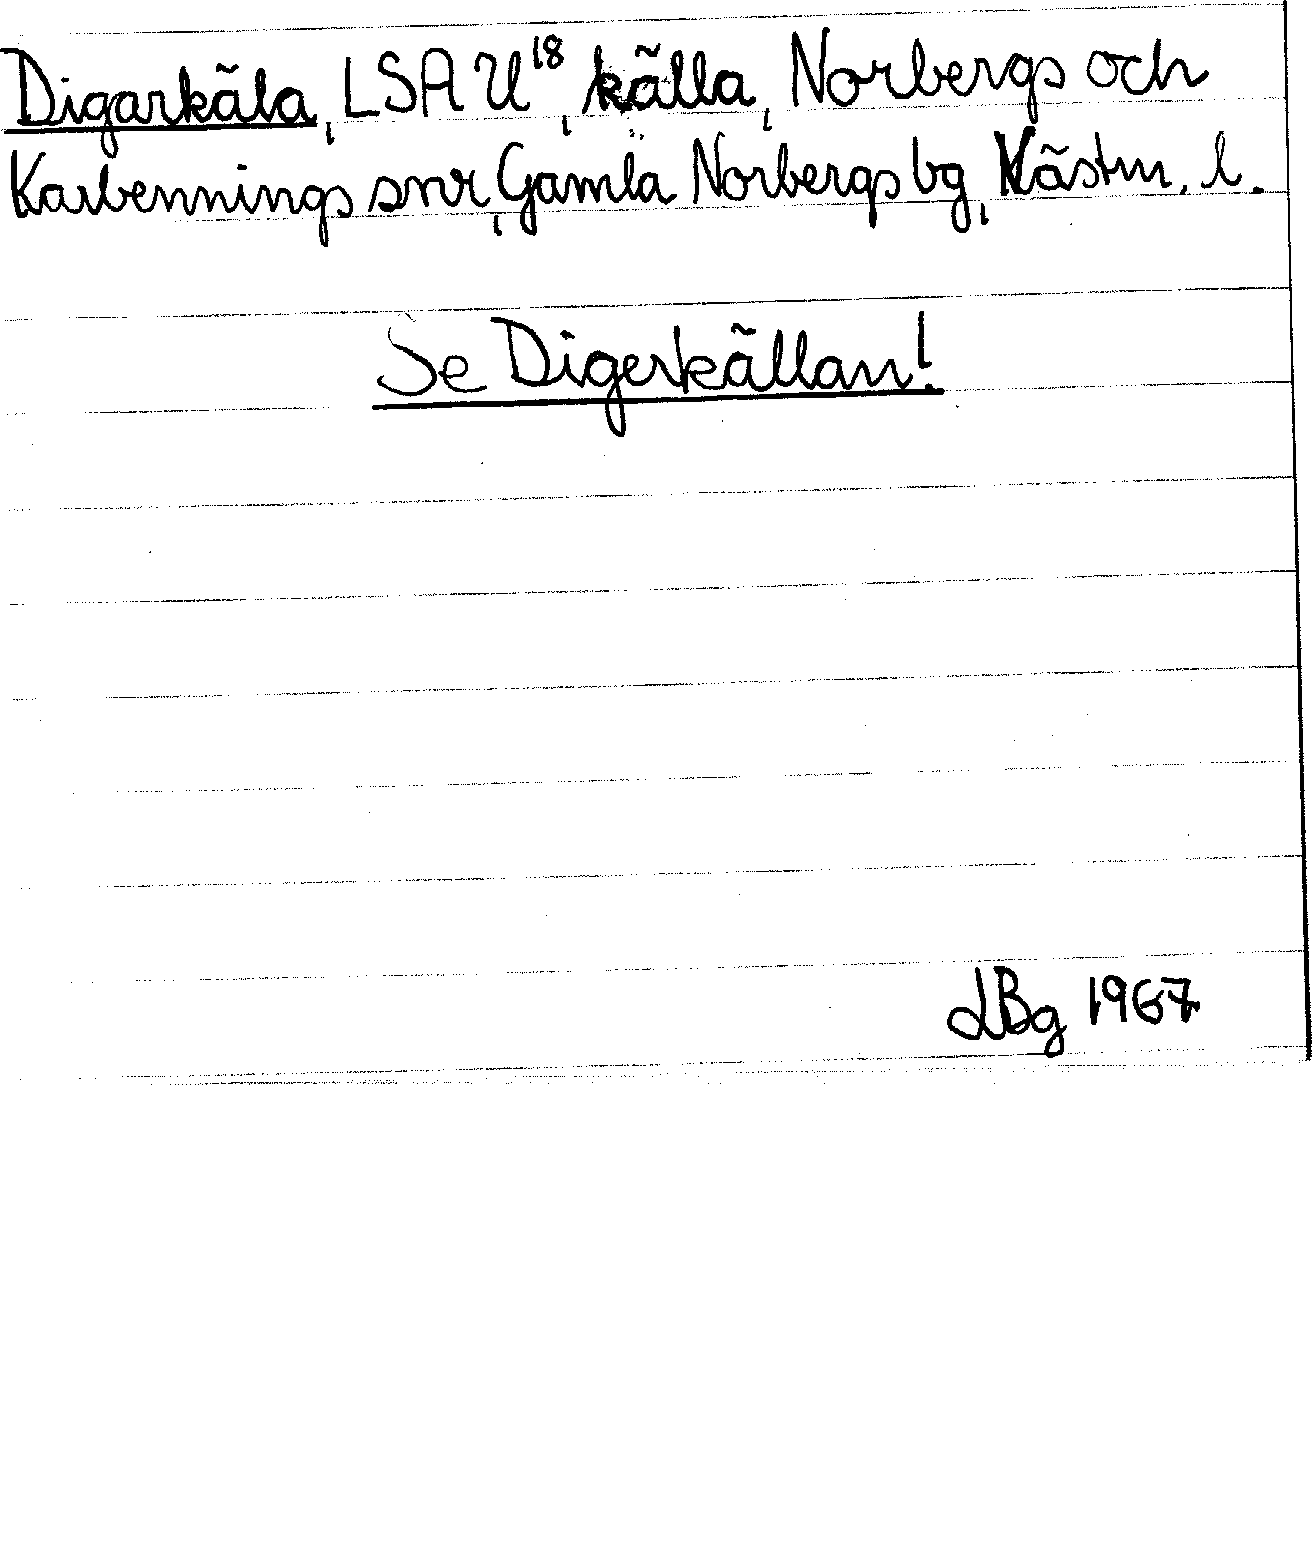 Digarkäla, LSA U¹⁸, källa, Norbergs och
Karbennings snr, Gamla Norbergs bg, Västm. l.
Se Digerkällan!
LBg 1967